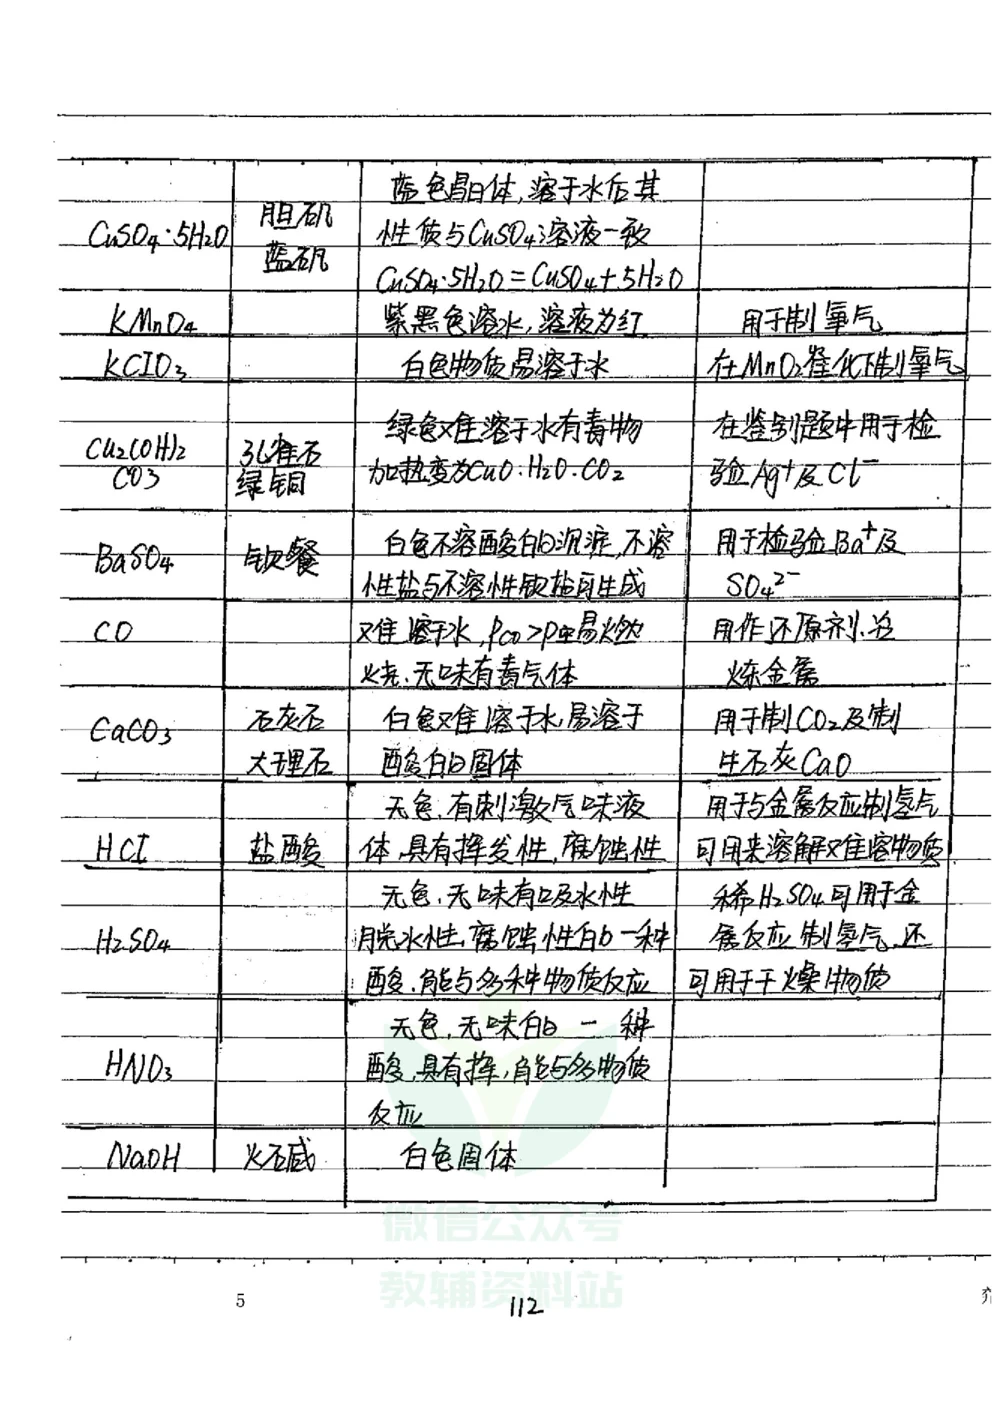 CuSO4·5H2O
胆矾
蓝矾
蓝色晶体,溶于水后其
性质与CuSO4溶液一致
CuSO4·5H2O=CuSO4+5H2O
KMnO4
紫黑色溶水,溶液为红
用于制氧气
KClO3
白色物质易溶于水
在MnO2催化下制氧气
Cu2(OH)2
CO3
孔雀石
绿铜
绿色难溶于水有毒物
加热变为CuO·H2O·CO2
在鉴别题中用于检
验Ag+及Cl-
BaSO4
钡餐
白色不溶酸的沉淀,不溶
性盐与不溶性钡盐可生成
用于检验Ba+及
SO4 2-
CO
难溶于水,ρco>ρ空易燃
烧,无味有毒气体
用作还原剂、冶
炼金属
CaCO3
石灰石
大理石
白色难溶于水,易溶于
酸的固体
用于制CO2及制
生石灰CaO
HCl
盐酸
无色,有刺激气味液
体,具有挥发性,腐蚀性
用于与金属反应制氢气
可用来溶解难溶物质
H2SO4
无色,无味有吸水性
脱水性,腐蚀性的一种
酸,能与多种物质反应
稀H2SO4可用于金
属反应制氢气,还
可用于干燥物质
HNO3
无色,无味的一种
酸,具有挥,能与多物质
反应
NaOH
火碱
白色固体
微信公众号
教辅资料站
5
112